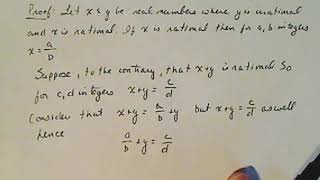 Proof: Let x & y be real numbers where y is irrational
and x is rational. If x is rational then for a, b integers
x = a/b
Suppose, to the contrary, that x+y is rational. So
for c, d integers x+y = c/d
Consider that x+y = a/b + y but x+y = c/d as well
hence
a/b + y = c/d